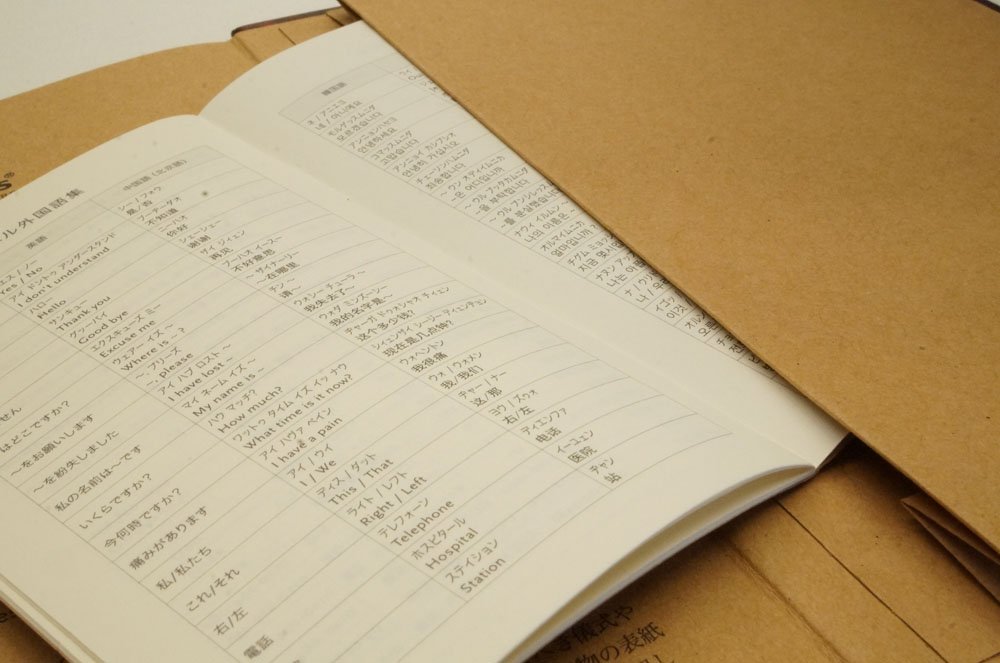 ル外国語集
英語
中国語（北京語）
韓国語
イエス / ノー
Yes / No
シー / フォウ
是 / 否
ネ / アニエヨ
네 / 아니에요
アイ ドントゥ アンダースタンド
I don't understand
ブーヂーダオ
不知道
モルゲッスムニダ
모르겠습니다
ハロー
Hello
ニーハオ
你好
アンニョンハセヨ
안녕하세요
サンキュー
Thank you
シェーシェー
谢谢
コマッスムニダ
고맙습니다
グッーバイ
Good bye
ザイ ジィェン
再见
アンニョイ カシプシオ
안녕히 가십시오
エクスキューズ ミー
Excuse me
ブーハオ イース―
不好意思
チェーソンハムニダ
죄송합니다
せん
はどこですか?
ウェアー イズ ～
Where is ～?
～ ザイナーリ
～在哪里
～ウン オディイムニカ
～은 어디입니까
～をお願いします
～、プリーズ
～, please
チン ～
请～
～ウル ブッタカムニダ
～을 부탁합니다
～を紛失しました
アイ ハブ ロスト ～
I have lost ～
ウォシー チューラ ～
我失去了～
～ウル ブンシルヘッスムニダ
～를 분실했습니다
私の名前は～です
マイ ネーム イズ ～
My name is ～
ウォダ ミンズーシー ～
我的名字是～
ナウィ イルムン
나의 이름은 ～
いくらですか?
ハウ マッチ?
How much?
チャーガ ドゥオシャオ チィェン
这个多少钱?
オルマイムニカ
얼마입니까
今何時ですか?
ワット タイム イズ イッ ナウ
What time is it now?
シィェンザイ シージーディェンヂョン
现在是几点钟?
チグム ミョッ
지금 몇
痛みがあります
アイ ハヴァ ペイン
I have a pain
ウォヘントン
我很痛
ナヌン ア
나는 아
私/私たち
アイ / ウイ
I / We
ウォ / ウォメン
我/我们
ナ / ウ
나 /
これ/それ
ディス / ダット
This / That
チャー / ナー
这/那
イゴッ
이것
右/左
ライト / レフト
Right / Left
ヨウ / ズゥオ
右/左
オルン
오른
電話
テレフォーン
Telephone
ディエンファ
电话
ホスピタール
Hospital
イーユェン
医院
ステイション
Station
チャン
站
儀式や
物の表紙